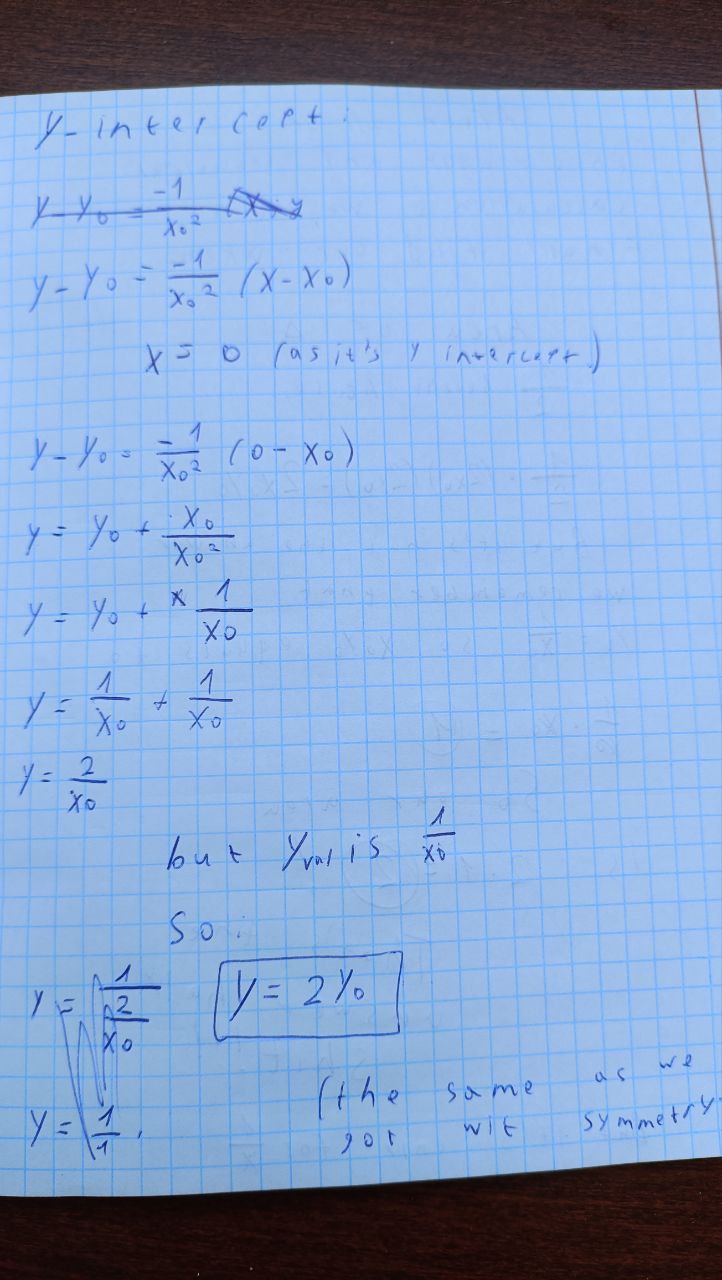 y-intercept:
y-y₀ = -1/x₀²
y-y₀ = -1/x₀² (x-x₀)
x = 0 (as it's y intercept)
y-y₀ = -1/x₀² (0-x₀)
y = y₀ + x₀/x₀²
y = y₀ + 1/x₀
y = 1/x₀ + 1/x₀
y = 2/x₀
but y val is 1/x₀
So:
y = 1/(2/x₀) y = 2y₀
(the same as we
y = 1/1. got wit symmetry